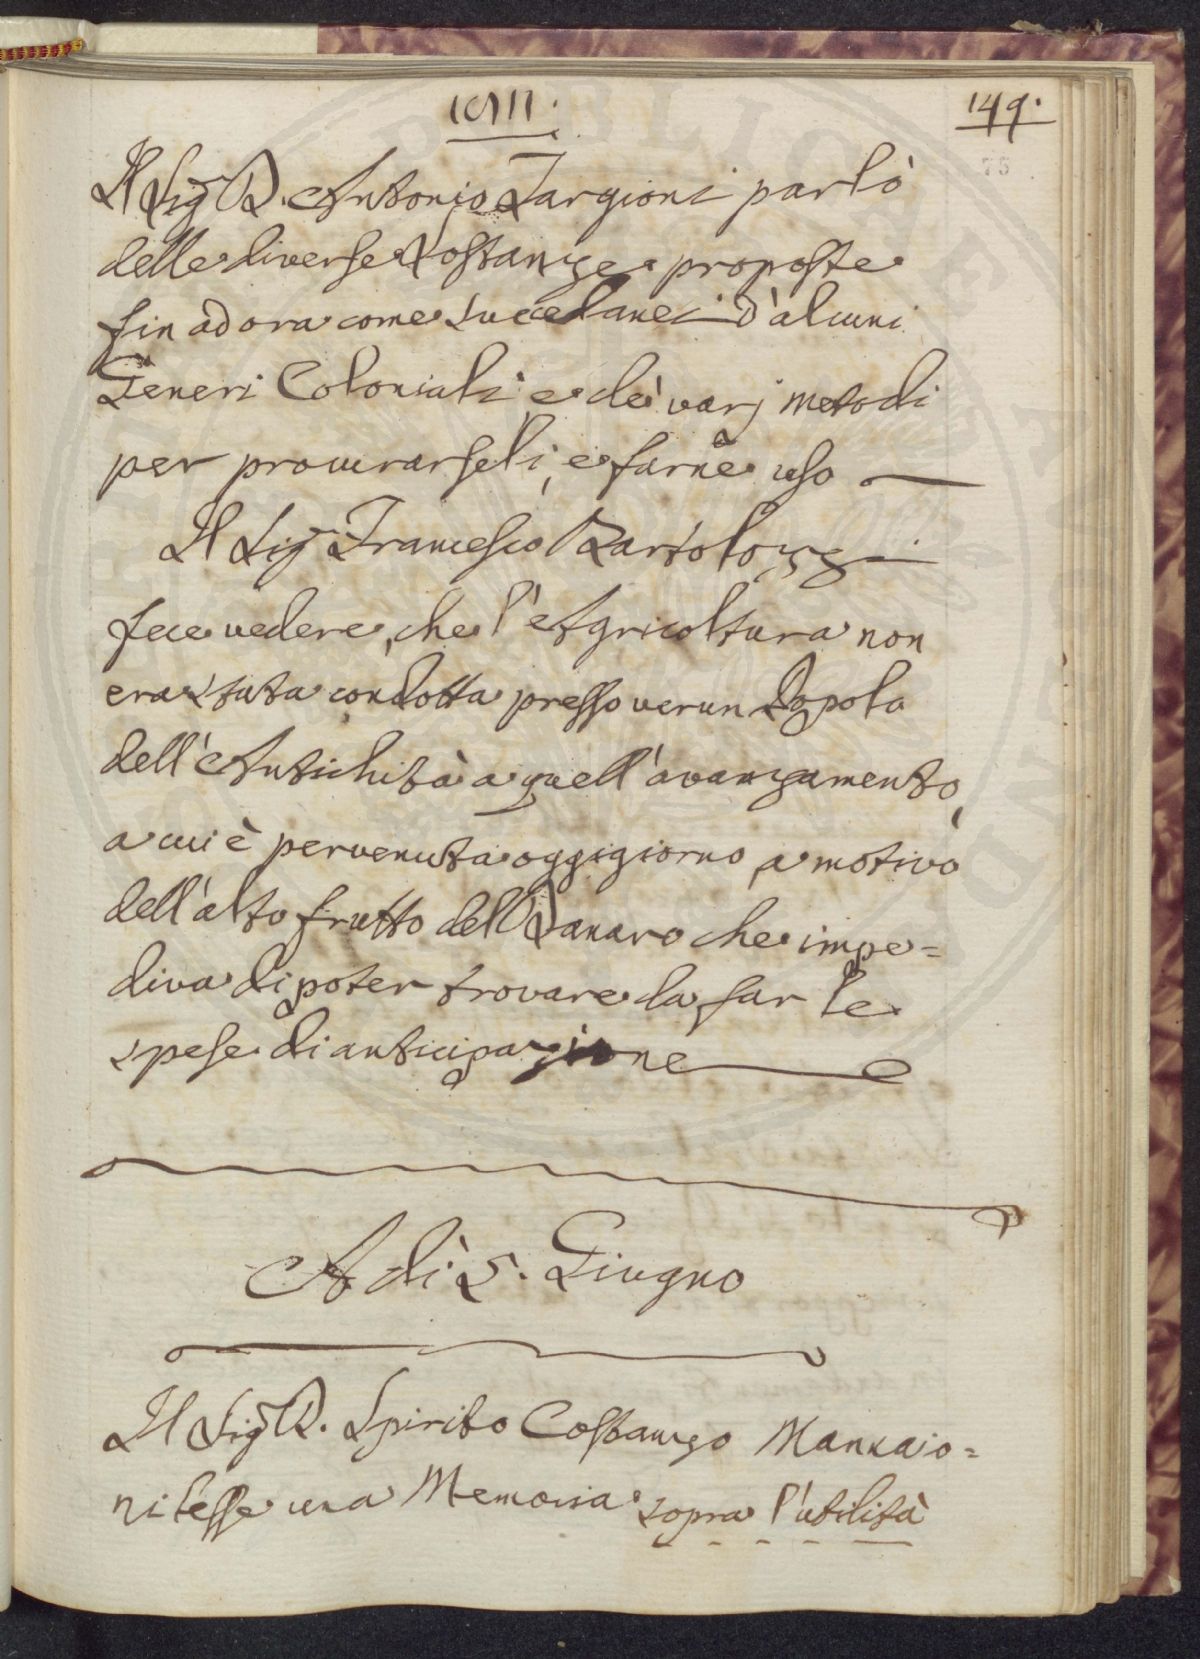 1811.
149.
75
Il Sig.r D. Antonio Targioni parlò
delle diverse Sostanze proposte
fin ad ora come succedanei d'alcuni
Generi Coloniali e de' varj metodi
per procurarseli, e farne uso
Il Sig.r Francesco Bartolozzi
fece vedere, che l'Agricoltura non
era stata condotta presso verun Popolo
dell'Antichità a quell'avanzamento,
a cui è pervenuta oggigiorno, a motivo
dell'alto frutto del Danaro che impe=
diva di poter trovare da far le
spese di anticipazione
A dì 5. Giugno
Il Sig.r D. Spirito Costanzo Mannajo=
ni lesse una Memoria sopra l'utilità